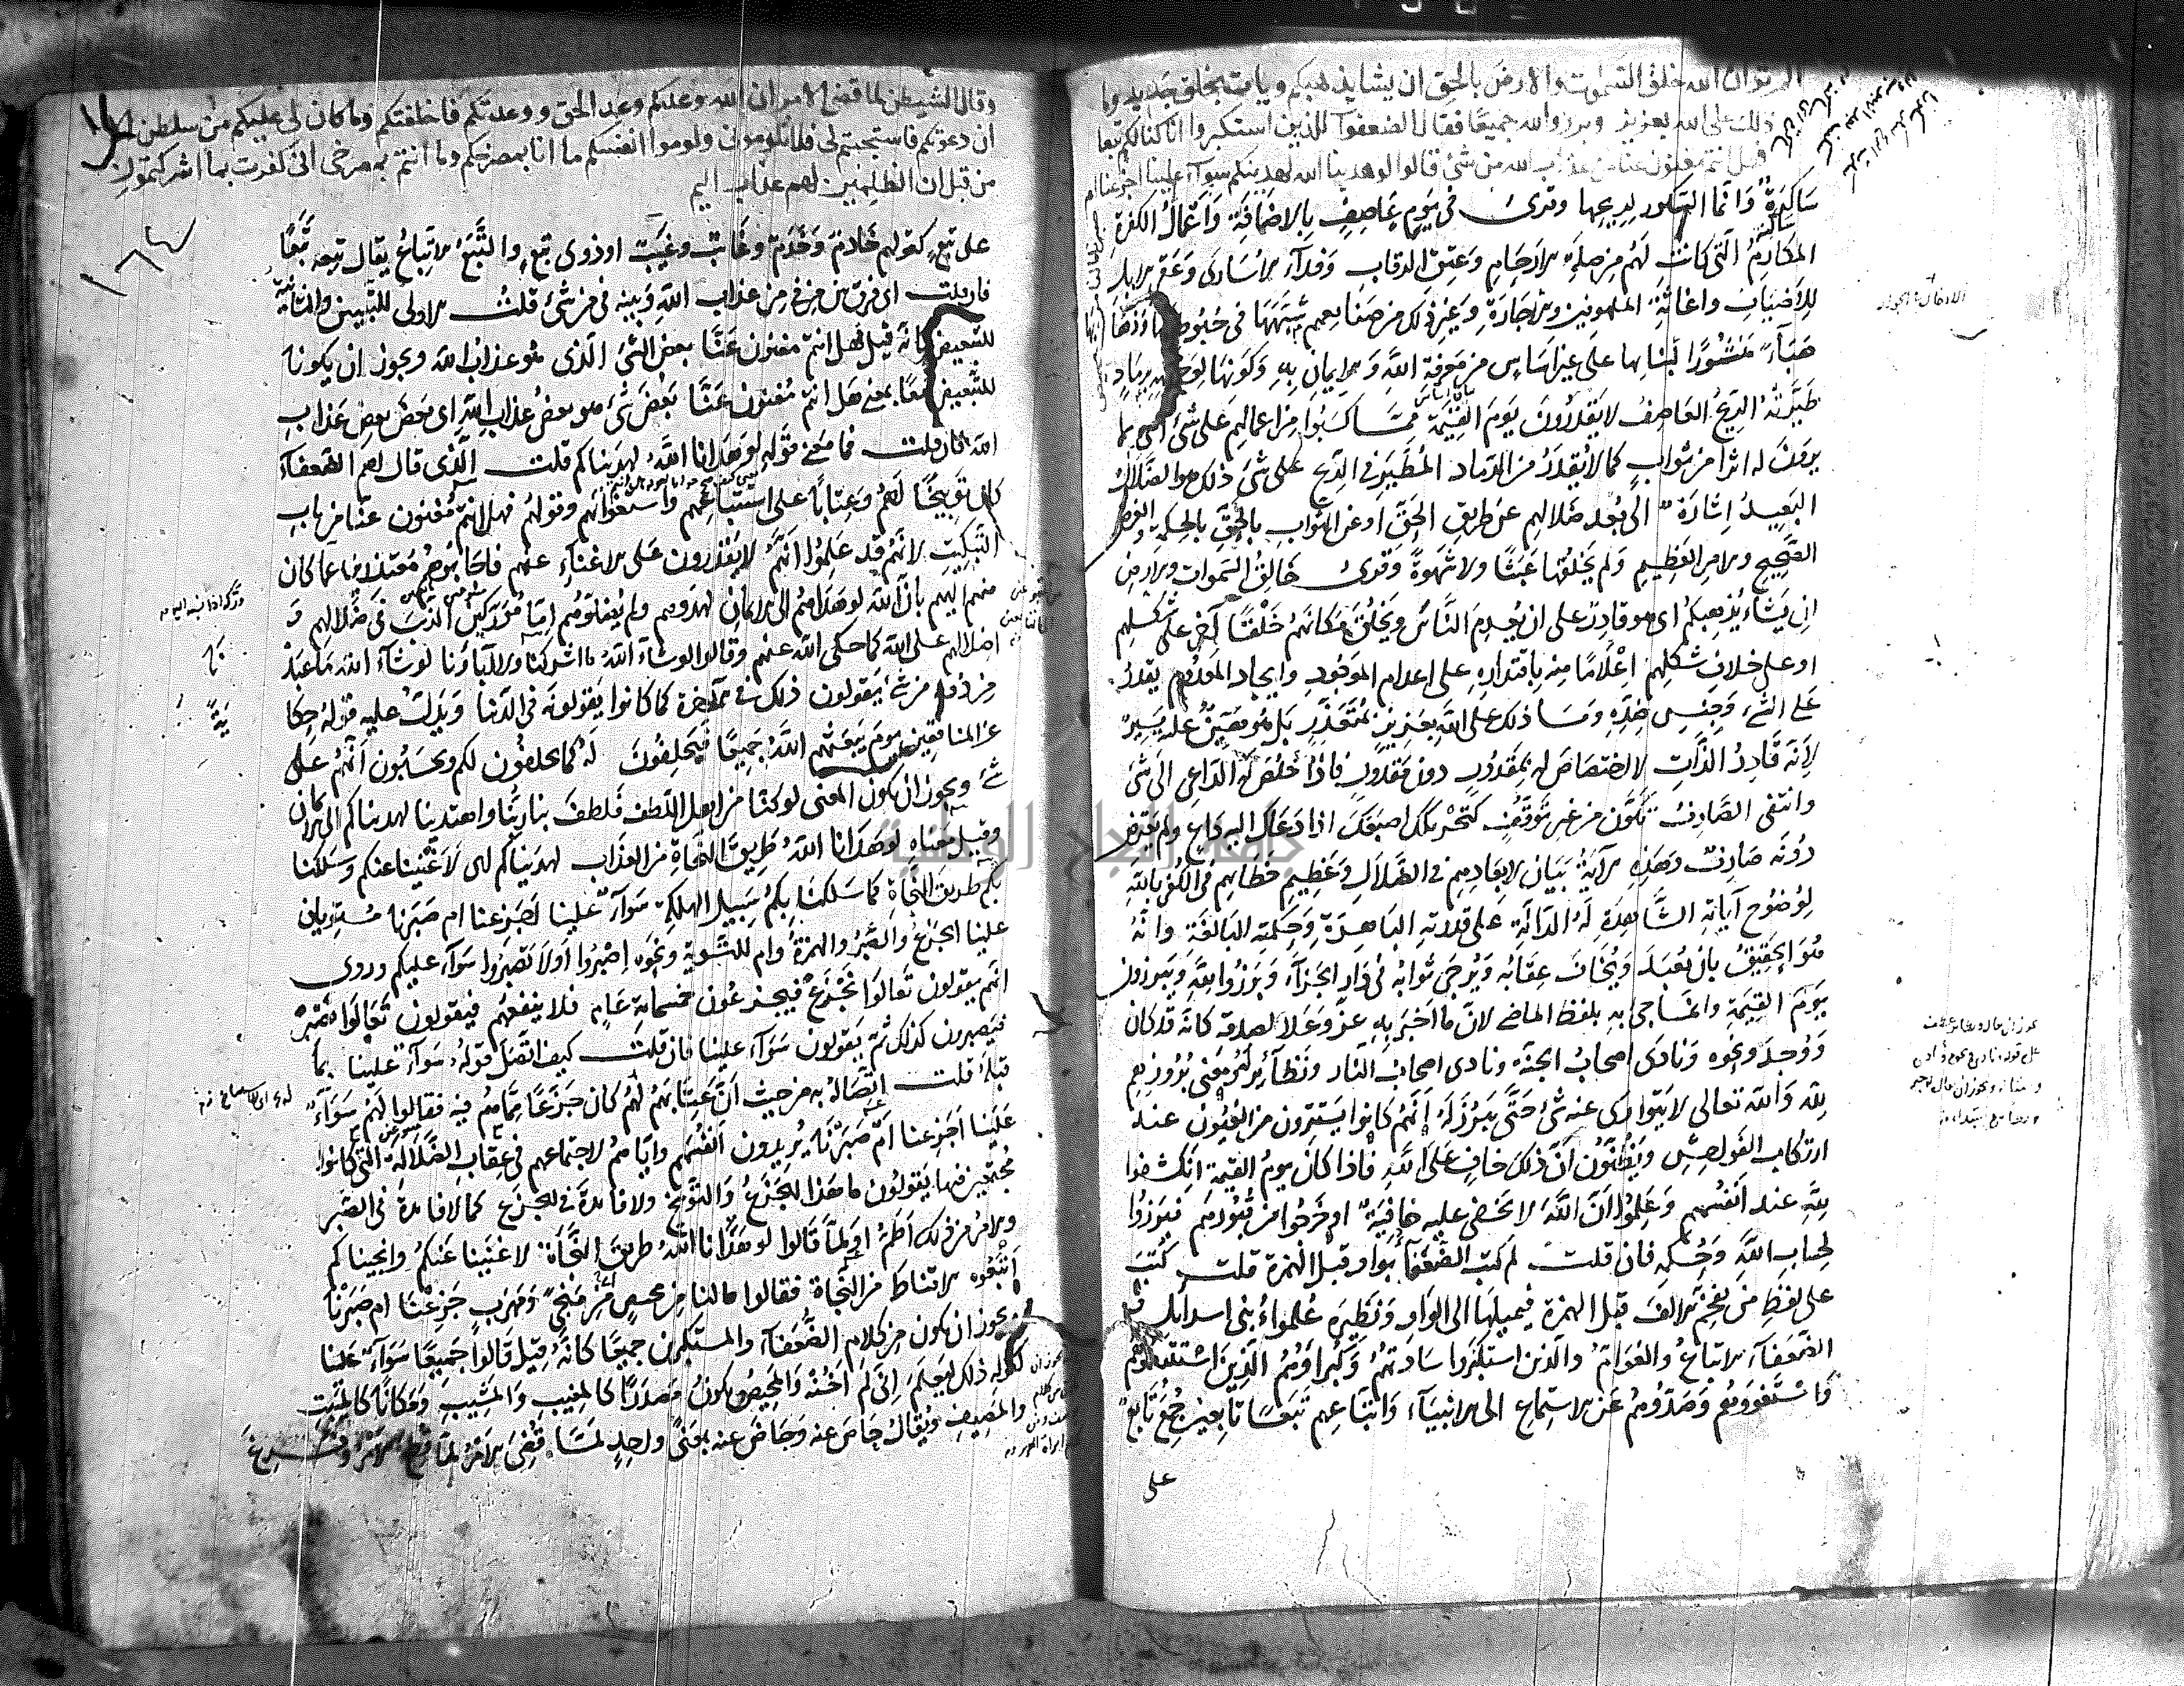 الم تر ان الله خلق السموت والارض بالحق ان يشا يذهبكم ويات بخلق جديد وما
ذلك على الله بعزيز وبرزوا لله جميعا فقال الضعفوا للذين استكبروا انا كنا لكم تبعا
فهل انتم مغنون عنا من عذاب الله من شئ قالوا لو هدينا الله لهدينكم سوآء علينا اجزعنا ام
سَاكِرَةٌ وَانما السكور لريحها وقرئ في يَومِ عَاصِفٍ بِالاضَافَةِ وَاعمالُ الكفرة
المكارِمُ الَّتى كانَت لَهُم مِن صِلَةِ الارحَامِ وَعتِق الرقابِ وَفدآء الاسَارى وَعَقر الابل
للاَضيافِ واغاثةِ الملهوفين والاجازة وَغيرِ ذلك من صَنايعهم شبّهَهَا في حُبُوطها وذهابها
هَبَآءً مَنثورًا لبنائها على غير اسَاسٍ من مَعرفة اللهِ وَالايمان بِهِ وَكونهَا لوَجههِ برمَادٍ
طَيّرتهُ الريح العَاصفُ لا يَقدِرُونَ يَومَ القِيمَةِ مما كسَبُوا من اعمالهم على شئ اى لا
يرون له اثرا من ثوابٍ كما لا يُقدَرُ من الرّماد المُطَيَّر في الريح على شئ ذلك هو الضلال
البَعيدُ اِشارَةٌ الى بُعد ضَلالهم عن طريق الحقّ اوعن الثواب بالحقّ بالحكمة والغرض
الصَّحيح والامرِ العَظِيمِ وَلم يَخلقها عَبَثًا ولا شهوةً وَقرئ خَالِقُ السَّمواتِ والارضِ
ان يَشَاء يُذهِبكُم اى هو قادِرٌ على ان يُعدِمَ النَّاسَ وَيَخلُقَ مَكانهُم خَلقًا آخر على شكلهم
او على خلاف شكلهم اِعْلامًا منه باقتدارِه على اعدام الموجُودِ وايجاد المَعدُوم يقدرُ
على الشئ وَجِنسِ ضِدِّهِ وَمَا ذلك على الله بعزيز بمُتعَذِّرٍ بَل هُوَ هَيِّنٌ عليه يَسِيرٌ
لاَنَّه قَادِرُ الذَّاتِ لا اختصَاصَ لهُ بمَقدُورٍ دونَ مَقدُورٍ فاذا خَلصَ لهُ الدّاعِى الى شئ
وانتفى الصَّارفُ تكوَّنَ من غير تَوقُّفٍ كتَحريكك اصبعَكَ اذا دَعَاكَ اليه داعٍ ولم يَعترض
دُونَه صَارفٌ وهَذهِ الآيَةُ بيَان لابعادِهم في الضَّلال وعَظِيمِ خَطَائِهم في الكفر بالله
لِوُضُوح آياتِه الشّاهِدَةِ لَهُ الدالّةِ على قدرته البَاهِرَةِ وَحِكمتِه البَالغَةِ وانَّهُ
هُوَ الحَقِيقُ بان يُعبَدَ وَيُخَافَ عِقَابُه وَيُرجَى ثَوَابُه في دَارِ الجَزآءِ وَبَرَزُوا لِلهِ وَيَبرُزونَ
يَومَ القِيمَةِ وانما جئ بِه بلفظ الماضى لانَّ مَا اَخبَرَ بِهِ عزَّ وَعَلا لصِدقه كانّهُ قد كان
وَوُجدَ ونحوه وَنادى اصحابُ الجنّة ونادى اصحابُ النّار ونظَآئِر لهُ ومَعنى بُرُوزِهم
لله وَالله تعالى لا يَتوارى عنه شئ حَتّى يَبرُزَ لَهُ اِنّهُم كانوا يَستترون من العُيُون عند
ارتكاب الفَواحِشِ ويَظنُّونَ اَنّ ذلكَ خافٍ على الله فاذا كانَ يومُ القيمة انكشفوا
لله عند اَنفُسِهم وَعَلِموُا اَنَّ اللهَ لا تخفى عليه خافيَة او خرجُوا من قُبُورهم فبَرَزُوا
لحِسابِ الله وَحُكمِه فان قلتَ لِمَ كتب الضُعَفوا بواو قبل الهَمزة قلت كُتِبَ
على لفظِ مَن يُفخّم الالفَ قبل الهمزة فيُميلها الى الواو وَنَظِيرَه عُلموآءُ بنى اسرآئِل
الضّعَفآء الاتباعُ والعَوَامّ والذين استكبرُوا سَادَتهُم وَكُبَراؤهُمُ الّذينَ استتبعُوهم
وَاستَغوَوهُم وَصَدّوهُم عَن الاستِماع الى الانبيَآء وَاتباعهم تَبَعًا تَابِعينَ جمعُ تَابعٍ
على
وقال الشيطن لما قضى الامر ان الله وعدكم وعد الحق ووعدتكم فاخلفتكم وما كان لى عليكم من سلطن الا
ان دعوتكم فاستجبتم لى فلا تلومونى ولوموا انفسكم ما انا بمصرخكم وما انتم بمصرخى انى كفرت بما اشركتمون
من قبل ان الظلمين لهم عذاب اليم
على تَبَعٍ كقولهم خَادِمٌ وَخَدَمٌ وغَائِبٌ وغَيَبٌ او ذوى تبعٍ والتَّبَعُ الاتباعُ يقال تبِعهُ تَبَعًا
فان قلت اى فرق بين من في من عذاب اللهِ وَبينه في من شئ قلتُ الاولى للتّبيين والثانية
للتبعيض كانّهُ قيل فهل انتم مغنُون عَنّا بعض الشئ الّذى هو عذاب الله ويجوز ان يكونا
للتبعيض معًا بمعنى هَل انتم مُغنُون عَنّا بَعْضَ شئٍ هو بعضُ عذاب الله اى بَعض بعض عَذابِ
الله فان قلت فما معنى قَولهِ لو هَدانا اللهُ لهديناكم قلت الّذى قال لهم الضعفآء
كان توبيخًا لَهُم وعِتابًا على استتباعِهم واستغوائهم وقولُهُم فهل انتم مُغنون عنّا من باب
التبكيت لانّهُم قد عَلِمُوا اَنّهُم لا يَقدرون على الاغناءِ عنهم فاجَابُوهُم مُعتذرين عما كان
منهم اليهم بانّ الله لو هَداهُم الى الايمان لهدَوهم ولم يُضِلّوهُم اِمّا مُوَرّكين الذّنبَ في ضَلالهم وَ
اضلالهم على الله كما حكى الله عنهم وقالوا لو شاء اللهُ ما اشركنا ولا آباؤنا لو شآءَ الله ما عبدنا
من دونه من شئ يَقولون ذلك في الآخرة كما كانوا يَقولونَهُ في الدّنيا وَيَدلّ عليه قولهُ حِكايةً
عن المنافقين يومَ يَبعَثُهم اللهُ جميعًا فيحلِفُونَ لهُ كما يحلفُون لكم ويحسَبُون اَنّهُم على
شئ ويجوز ان يكون المعنى لو كنّا من اهل اللطف فلطفَ بنا ربّنا واهتدينا لهديناكم الى الايمان
وقيل مَعناه لو هَدانا اللهُ طريقَ النّجاةِ من العذاب لهديناكم اى لاَغنَينا عنكم وسَلكنا
بكُم طريقَ النّجاة كما سَلكنا بكُم سَبيل الهلكة سَوآءٌ علينا اجَزعنا ام صَبرنا مستويان
علينا الجزَعُ والصّبرُ والهمزة وام للتّسوية ونحوه اِصبُروا اولا تَصبرُوا سَوآء عليكم وروى
انهم يقولون تَعالَوا نَجزَعْ فيجزعُون خمسمائة عَامٍ فلا ينفعهم فيقولون تَعَالَوا نَصْبر
فيَصبرون كذلك ثمّ يَقولون سَوآء علينا فان قلت كيف اتّصَل قولهُ سَوآء علينا بما
قبلَهُ قلت اتّصَاله به من حَيث انّ عِتَابَهم لهُم كان جَزعًا مِمّا هُم فيه فقالوا لهُم سَوَآءٌ
عَلَينا اَجَزعنا اَم صَبَرنا يُريدون اَنفُسَهم وايّاهم لاجتماعهم في عقاب الضّلالة التى كانوا
مُجتمعين فيها يَقُولون ما هَذا الجَزعُ وَالتّوبيخ ولا فائدة في الجزع كما لا فائدة في الصّبر
والامرُ من ذلك اَطَمّ اولمّا قَالوا لو هَدانا اللهُ طريقَ النّجاة لاَغنَينا عَنكُم وانجيناكم
اَتبَعُوه الاقناطَ من النّجاة فقالوا ما لنا من محيصٍ اى مَنجىً وَمَهربٍ جَزِعنا ام صَبرنا
ويجوز ان يكون من كلام الضُعَفآء والمستكبرين جميعًا كانّهُ قيل قَالوا جَميعًا سَوآء عَلينا
كقوله ذلك ليَعلمَ اِنّى لَم اَخُنهُ والمحِيصُ يكونُ مصدرًا كالمغيب وَالمَشيب وَمكانًا كالمَبِيت
والمَصِيفِ ويُقالُ حَاصَ عنه وَجَاضَ عنه بمعنًى واحدٍ لمّا قُضِىَ الامرُ لمّا قطع الامر وفرغ